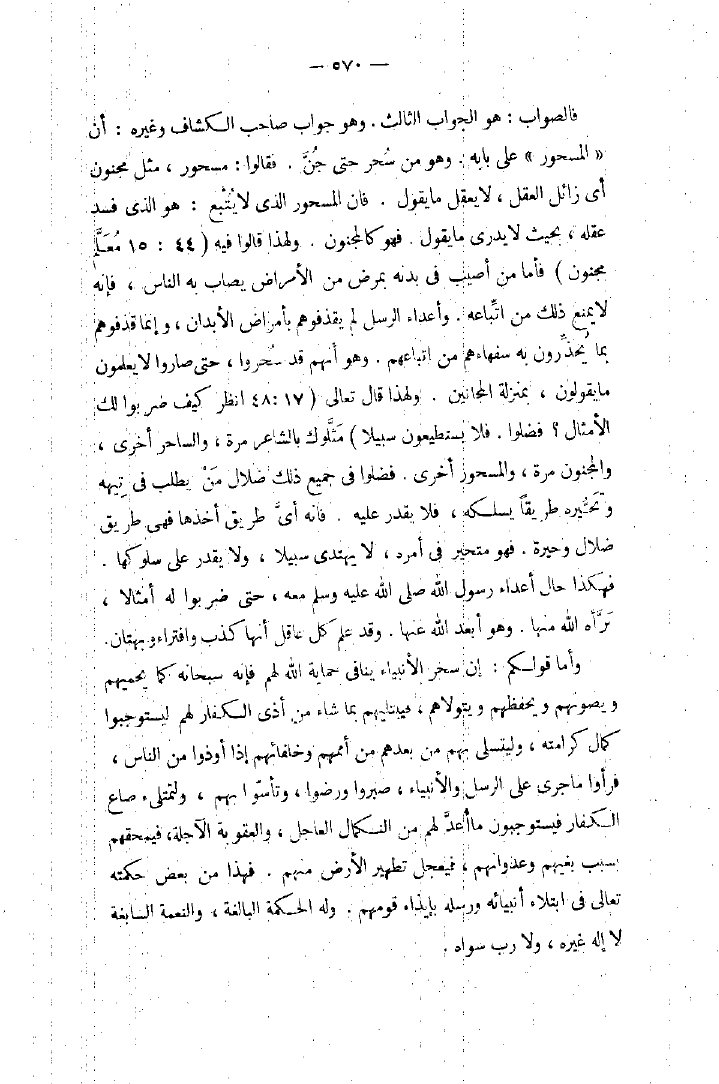 — ٥٧٠ —
فالصواب : هو الجواب الثالث . وهو جواب صاحب الكشاف وغيره : أن
« المسحور » على بابه . وهو من سُحر حتى جُنَّ . فقالوا : مسحور ، مثل مجنون
أى زائل العقل ، لايعقل مايقول . فان المسحور الذى لايُتْبع : هو الذى فسد
عقله ، بحيث لايدرى مايقول . فهو كالمجنون . ولهذا قالوا فيه ( ٤٤ : ١٥ مُعَلَّم
مجنون ) فأما من أصيب فى بدنه بمرض من الأمراض يصاب به الناس ، فإنه
لايمنع ذلك من اتِّباعه . وأعداء الرسل لم يقذفوهم بأمراض الأبدان ، وإنما قذفوهم
بما يُحذِّرون به سفهاءهم من اتباعهم . وهو أنهم قد سُحروا ، حتى صاروا لايعلمون
مايقولون ، بمنزلة المجانين . ولهذا قال تعالى ( ١٧ : ٤٨ انظر كيف ضربوا لك
الأمثال ؟ فضلوا . فلا يستطيعون سبيلا ) مَثَّلوك بالشاعر مرة ، والساحر أخرى ،
والمجنون مرة ، والمسحور أخرى . فضلوا فى جميع ذلك ضلال مَنْ يطلب فى تِيهه
وتَحَيُّره طريقاً يسلكه ، فلا يقدر عليه . فانه أىَّ طريق أخذها فهى طريق
ضلال وحيرة . فهو متحير فى أمره ، لا يهتدى سبيلا ، ولا يقدر على سلوكها .
فهكذا حال أعداء رسول الله صلى الله عليه وسلم معه ، حتى ضربوا له أمثالا ،
بَرَّأه الله منها . وهو أبعد الله عنها . وقد علم كل عاقل أنها كذب وافتراء وبهتان .
وأما قولكم : إن سحر الأنبياء ينافى حماية الله لهم فإنه سبحانه كما يحميهم
ويصونهم ويحفظهم ويتولاهم ، فيبتليهم بما شاء من أذى الكفار لهم ليستوجبوا
كمال كرامته ، وليتسلى بهم من بعدهم من أممهم وخلفائهم إذا أوذوا من الناس ،
فرأوا ماجرى على الرسل والأنبياء ، صبروا ورضوا ، وتأسّوا بهم ، ولتمتلىء صاع
الكفار فيستوجبون ماأُعدَّ لهم من النكال العاجل ، والعقوبة الآجلة ، فيمحقهم
بسبب بغيهم وعدوانهم ، فيعجل تطهير الأرض منهم . فهذا من بعض حكمته
تعالى فى ابتلاء أنبيائه ورسله بإيذاء قومهم . وله الحكمة البالغة ، والنعمة السابغة
لا إله غيره ، ولا رب سواه .